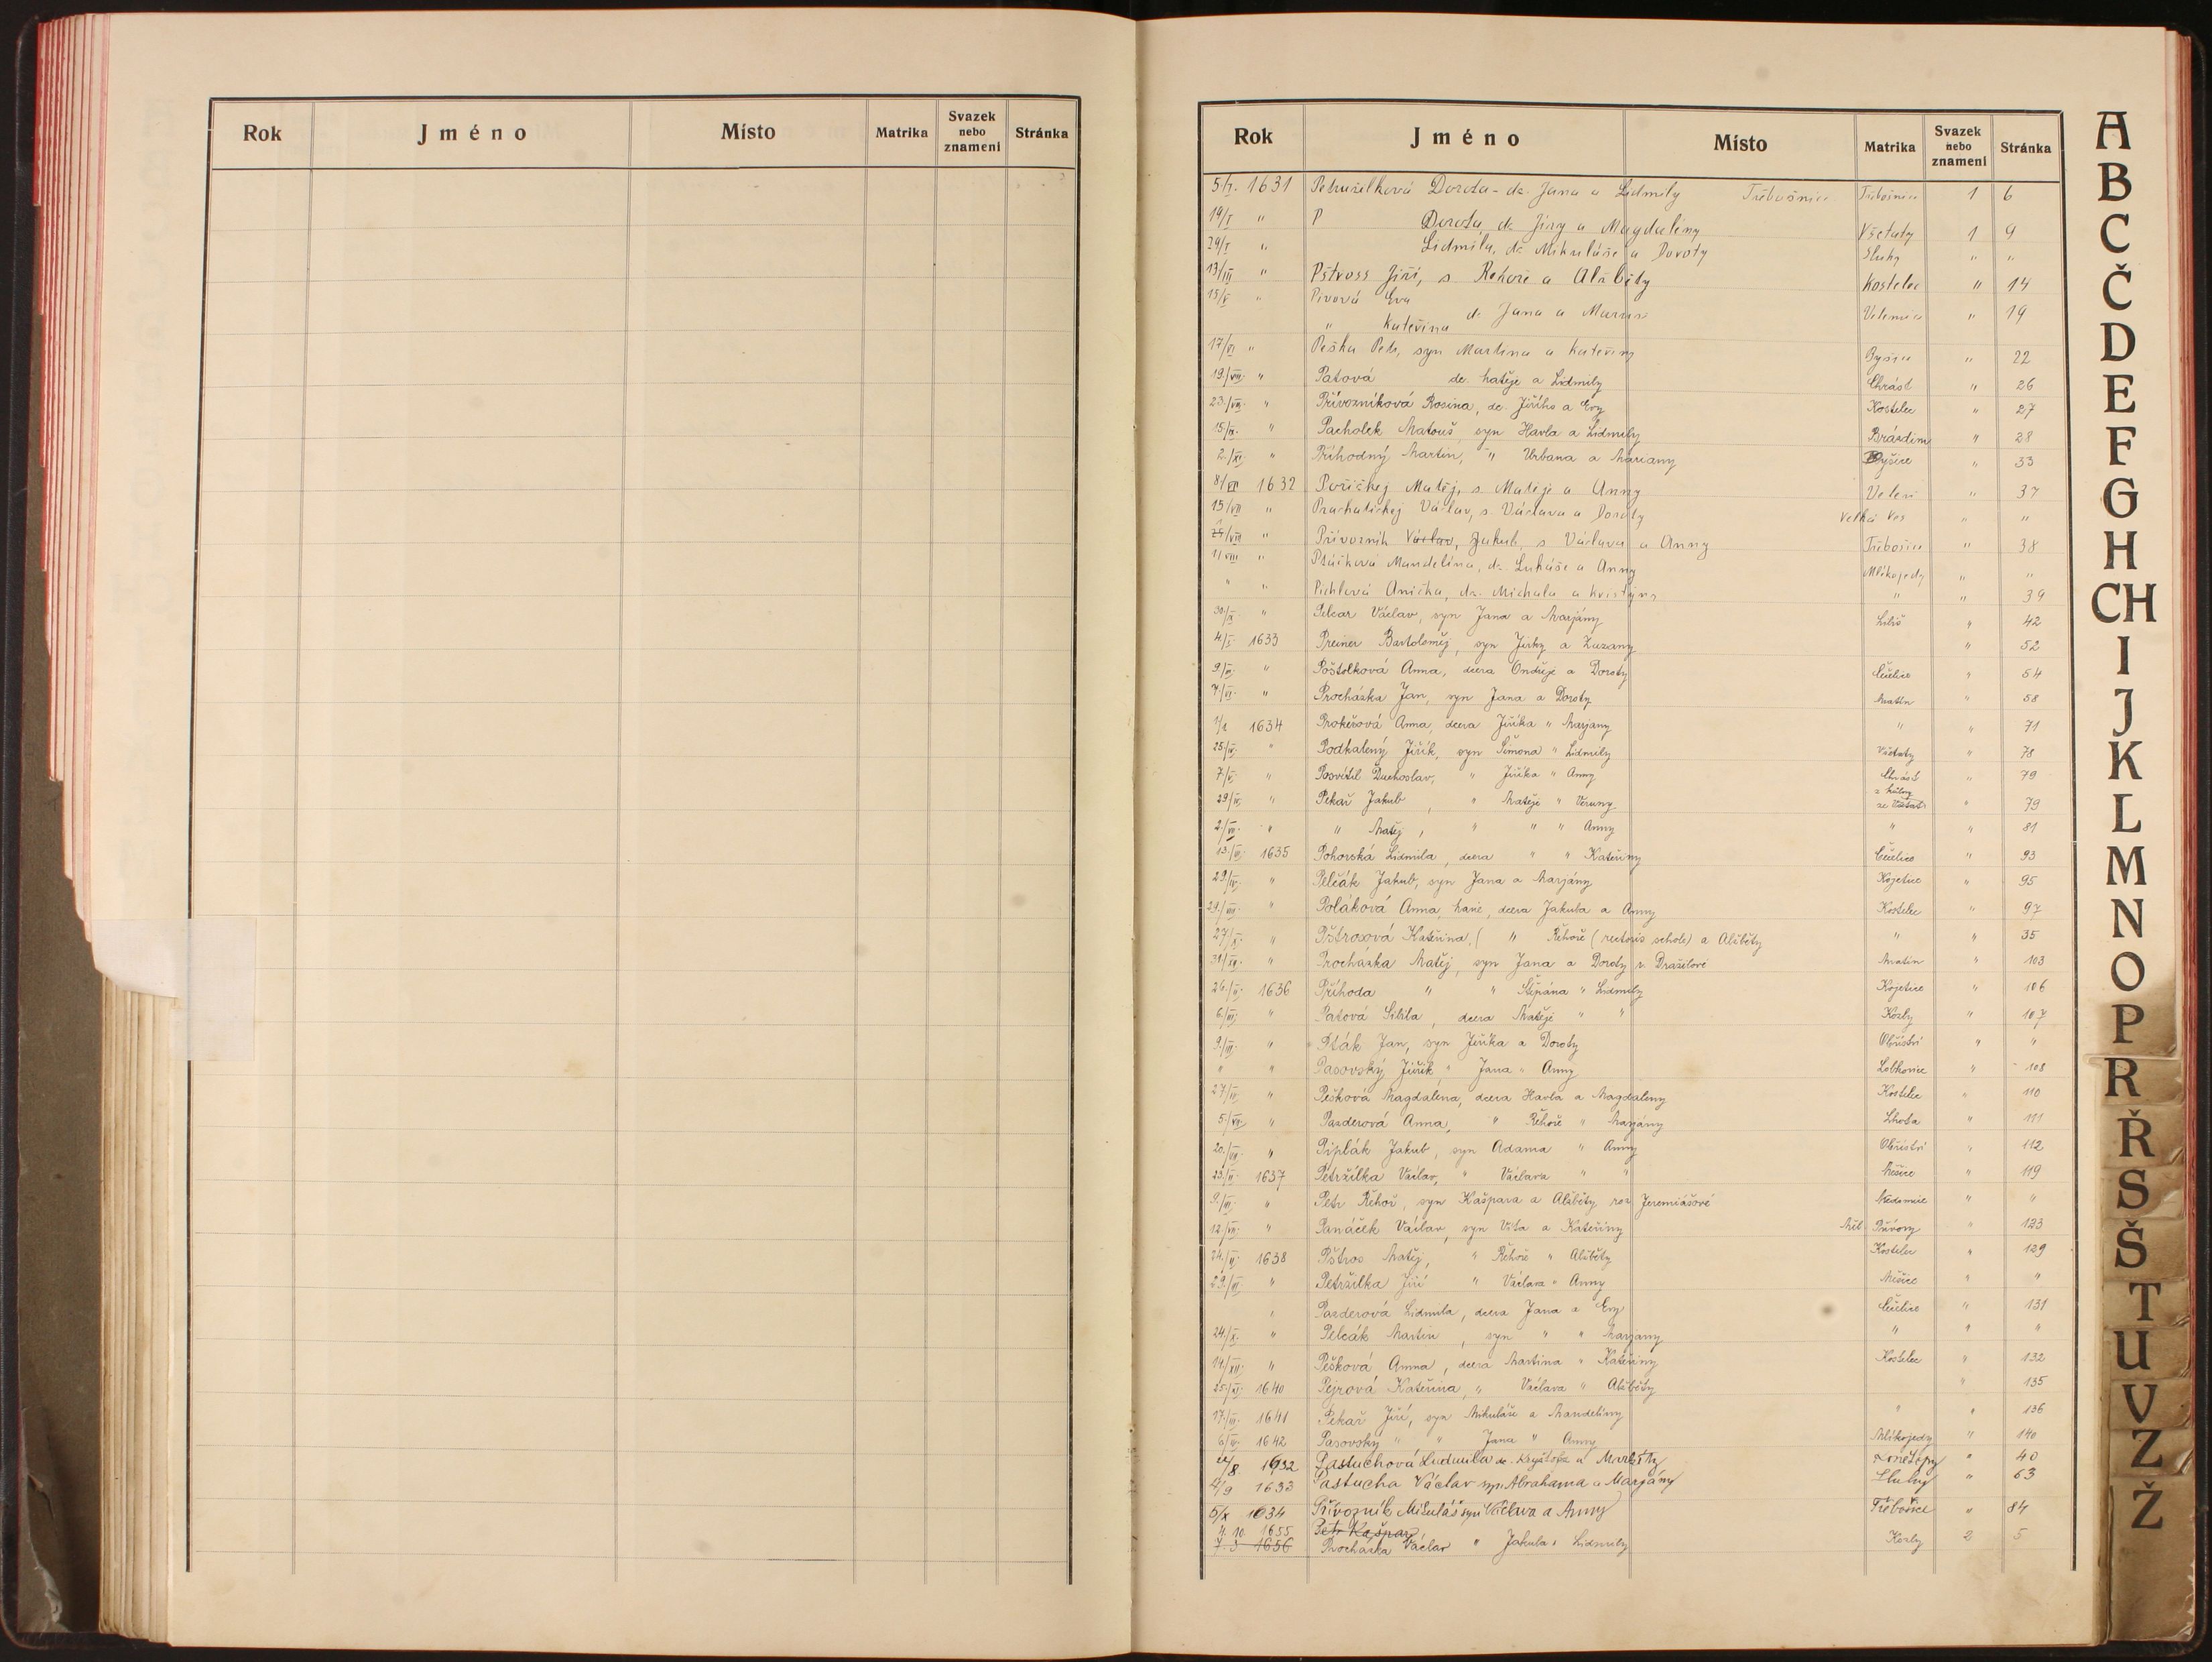 Rok Jméno Místo Matrika Svazek nebo znamení Stránka
Rok Jméno Místo Matrika Svazek nebo znamení Stránka
5/I. 1631 Petruželková Dorota - dc. Jana a Lidmily Třebošnice 1 6
19/I " P Dorota, dc. Jiry a Magdaleny Všetaty 1 9
29/I " Lidmila, dc. Mikuláše a Doroty Sluhy " "
13/III " Pštross Jiří, s. Řehoře a Alžběty Kostelec " 14
15/V " Pivová Eva
" Kateřina dc. Jana a " 19
17/VI " Peška Petr, syn Martina a Kateřiny Byšice " 22
19./VIII. " Patová dc. Matěje a Lidmily Chrást " 26
23./VIII. " Přívozníková Rosina, dc. Jiřího a Evy Kostelec " 27
15/IX. " Pacholek Matouš, syn Havla a Lidmily Brázdim " 28
2./XI. " Příhodný Martin, " Urbana a Mariany Byšice " 33
8/ 1632 Poříčkej Matěj, s. Matěje a Anny Veleň " 37
15/VII " Prachatickej Václav, s. Václava a Doroty Velká Ves " "
/VII " Přívozník Václav, Jakub, s Václava a Anny " 38
11/VIII " Ptáčková Mandelína, dc. Lukáše a Anny Mlékojedy " "
" " Anička, dc. Michala a " " 39
30./IX. " Pelcar Václav, syn Jana a Marjány Libiš " 42
4./I. 1633 Preiner Bartoloměj, syn Jirky a Zuzany " 52
9/ " Poštolková Anna, dcera Ondřeje a Doroty Čečelice " 54
7./VI. " Procházka Jan, syn Jana a Doroty " 58
1/ 1634 Prokešová Anna, dcera Jiříka " Marjany " " 71
25/ " Podkalený Jiřík, syn Šimona " Lidmily Všetaty " 78
7/ " Posvítil Duchoslav, " Jiříka " Anny Chrást " 79
29/ " Pekař Jakub, " Matěje " Veruny ze Všetat " 79
2./VII. " " Matěj, " " " Anny " " 81
13./ 1635 Pohorská Lidmila, dcera " " Kateřiny Čečelice " 93
29./IV. " Pelčák Jakub, syn Jana a Marjány Kojetice " 95
29./VII. " Poláková Anna, Marie, dcera Jakuba a Anny Kostelec " 97
27/X. " Pštrosová Kateřina, ( " Řehoře (rectoris schole) a Alžběty " " 35
31/XII. " Procházka Matěj, syn Jana a Doroty r. Dražilové " 103
26./II. 1636 Příhoda " " Štěpána " Lidmily Kojetice " 106
6./III. " Patová Sibila, dcera Matěje " " Kozly " 107
9./III. " Pták Jan, syn Jiříka a Doroty Obříství " "
" " Pasovský Jiřík " Jana " Anny Lobkovice " 108
27/IV. " Pešková Magdaléna, dcera Havla a Magdaleny Kostelec " 110
5./VII. " Pazderová Anna, " Řehoře " Marjány Lhota " 111
20./VII. " Piplák Jakub, syn Adama " Anny Obříství " 112
23./II. 1637 Petržilka Václav, " Václava " " Měšice " 119
9./III. " Petr Řehoř, syn Kašpara a Alžběty roz. Jeremiášové Nedomice " "
12/VII. " Panáček Václav, syn Víta a Kateřiny " 123
24./II. 1638 Pštros Matěj, " Řehoře " Alžběty Kostelec " 129
29./VI. " Petržilka Jiří " Václava " Anny Měšice " "
" Pazderová Lidmila, dcera Jana a Evy Čečelice " 131
24./X. " Pelcák Martin, syn " " Marjany " " "
14./XII. " Pešková Anna, dcera Martina " Kateřiny Kostelec " 132
25./XI. 1640 Pejrová Kateřina, " Václava " Alžběty " 135
17./III. 1641 Pekař Jiří, syn Mikuláše a Mandeliny " " 136
6/ 1642 Pasovský " " Jana " Anny Mlékojedy " 140
/8 1632 Pastuchová Ludmila dc. Kryštofa a Markéty " 40
4/9 1633 Pastucha Václav syn Abrahama a Marjány Sluhy " 63
5/X 1634 Přívozník Mikuláš syn Václava a Anny Třebošice " 84
4. 10. 1655 Petr Kašpar
7. 3 1656 Procházka Václav " Jakuba a Lidmily Kozly 2 5
A
B
C
Č
D
E
F
G
H
CH
I
J
K
L
M
N
O
P
R
Ř
S
Š
T
U
V
Z
Ž